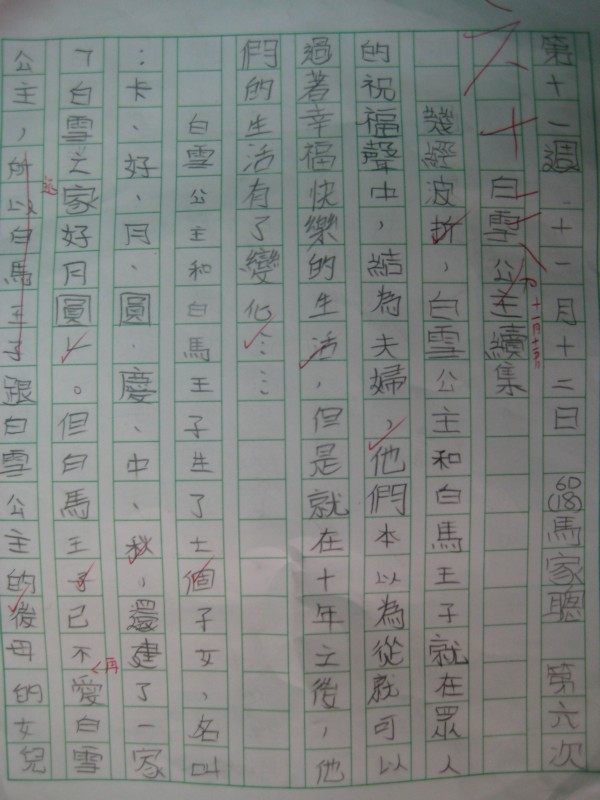 第十一週.十一月十二日 60(18)馬家聰 第六次
白雪公主續集
幾經波折,白雪公主和白馬王子就在眾人
的祝福聲中,結為夫婦,他們本以為從就可以
過著幸福快樂的生活,但是就在十年之後,他
們的生活有了變化……
白雪公主和白馬王子生了七個子女,名叫
:卡、好、月、圓、慶、中、秋,還建了一家
「白雪之家好月圓」。但白馬王子已不愛白雪
再
公主,所以白馬王子跟白雪公主的後母的女兒